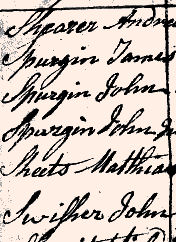 Shearer Andre
Spurgin James
Spurgin John
Spurgin John Ju
Sheets Matthias
Swisher John